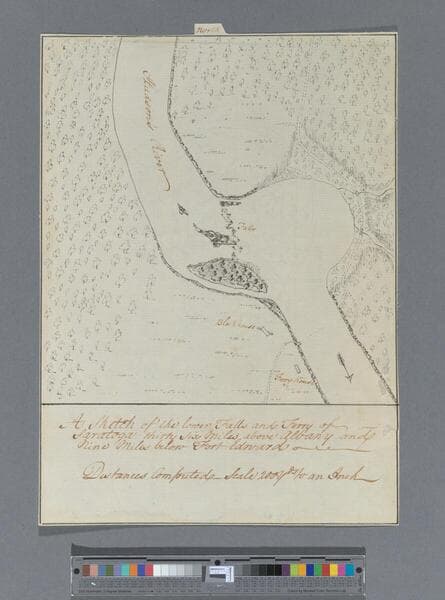 North
Hudsons River
Falls
Blockhouse
Ferry house
A Sketch of the lower Falls and Ferry of
Saratoga thirty Six Miles above Albany and
Nine Miles below Fort Edward
Distances Computed Scale 200 Yds to an Inch